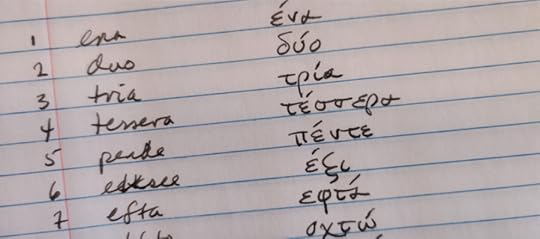 1 ena ένα
2 duo δύο
3 tria τρία
4 tessera τέσσερα
5 pende πέντε
6 έξι
7 efta εφτά
οχτώ